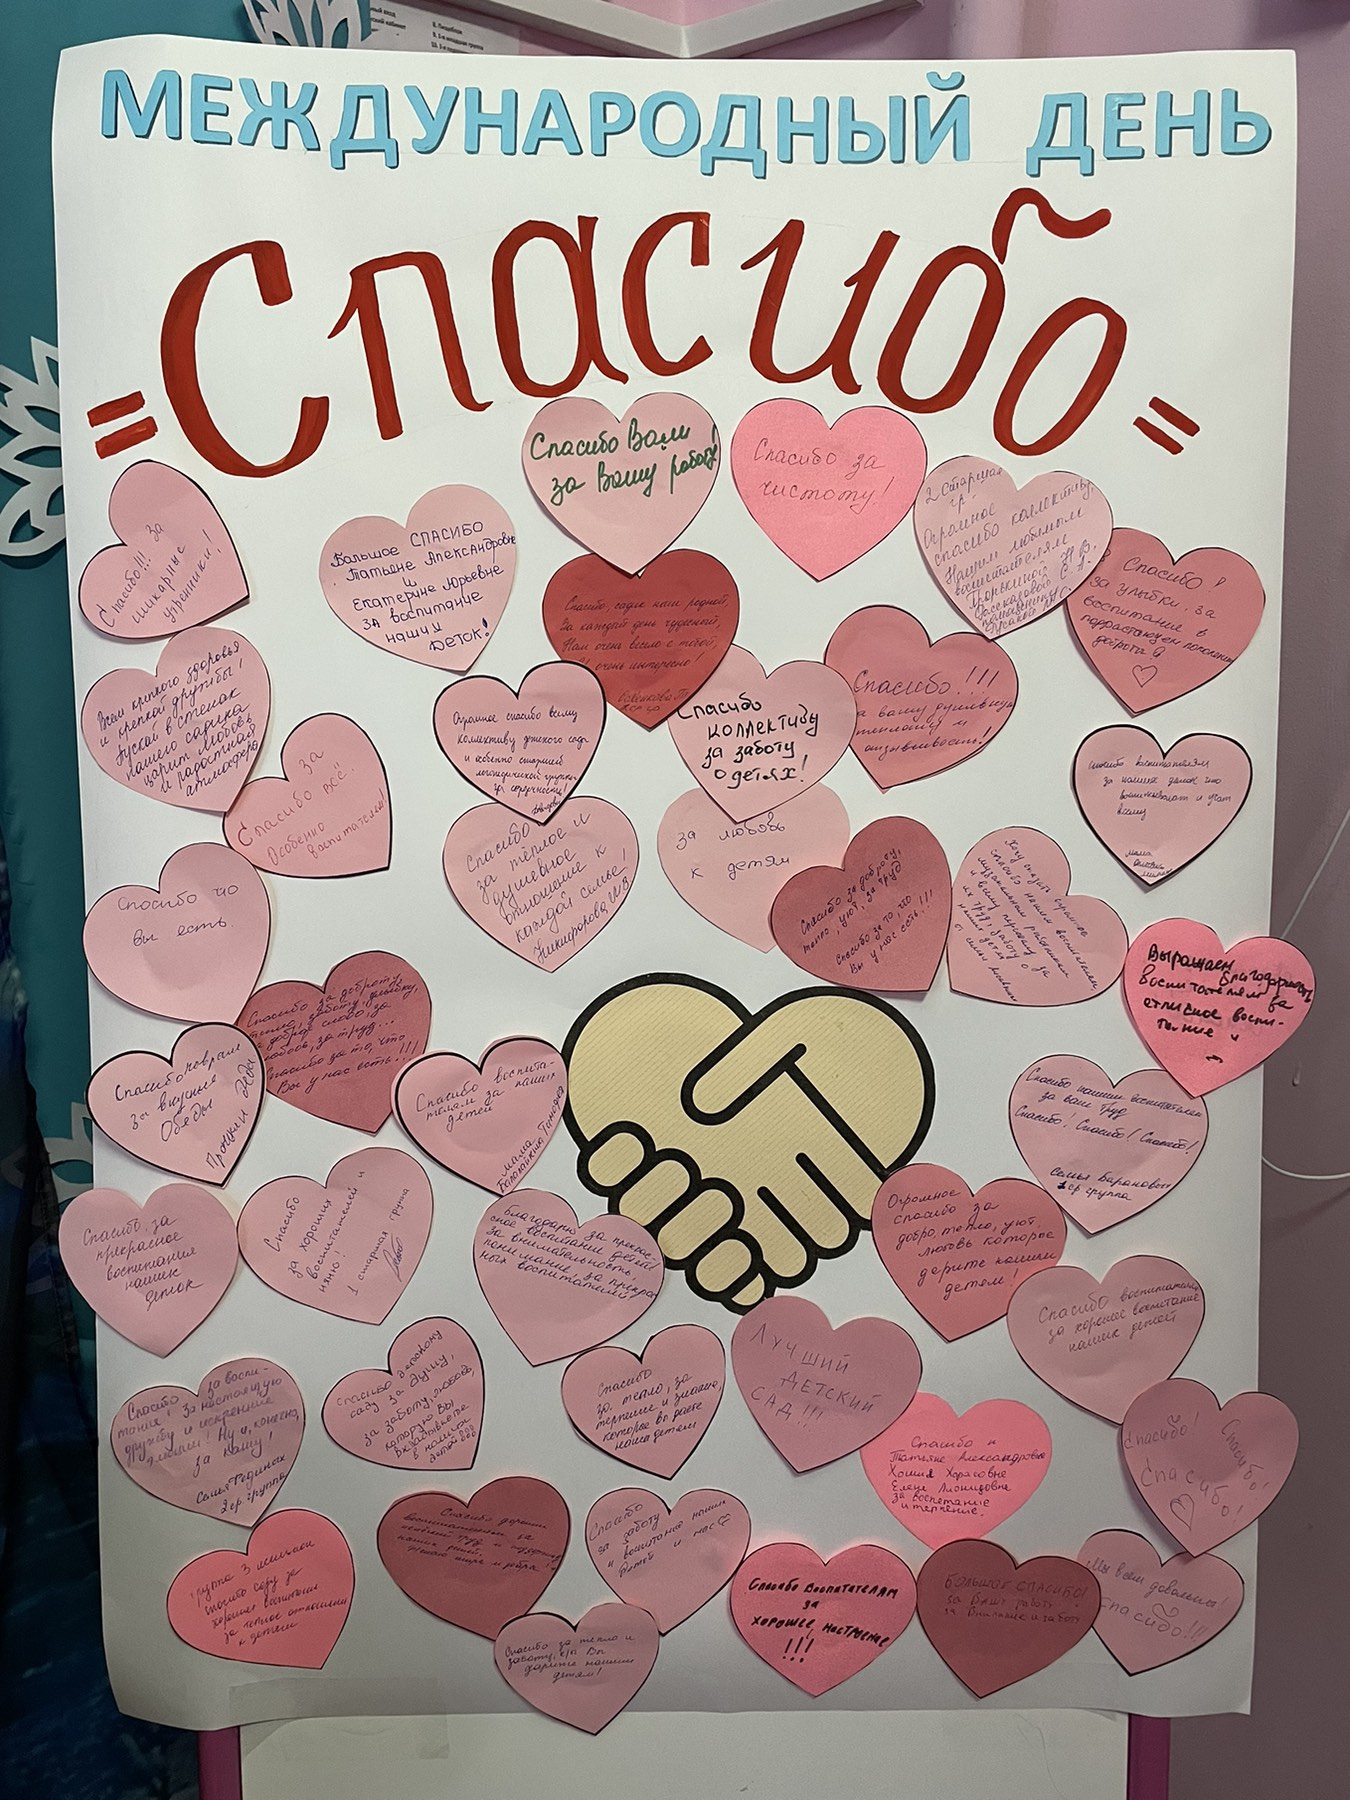 МЕЖДУНАРОДНЫЙ ДЕНЬ
=Спасибо=
Спасибо Вам
за Вашу работу!
Спасибо за
чистоту!
2 старшая
гр.
Огромное
спасибо коллективу,
Нашим любимым
воспитателям
Спасибо!
за улыбки, за
воспитание в
подрастающем поколении
доброты
Спасибо!!! За
шикарные
утренники!
Большое СПАСИБО
Татьяне Александровне
и
Екатерине Юрьевне
За воспитание
наших
деток!
Спасибо, садик наш родной,
За каждый день чудесный,
Нам очень весело с тобой,
И очень интересно!
Всем крепкого здоровья
и крепкой дружбы!
Пускай в стенах
нашего садика
царит любовь
и радостная
атмосфера
Огромное спасибо всему
коллективу детского сада
и особенно старшей
логопедической группе
Спасибо
коллективу
за заботу
о детях!
Спасибо!!!
за вашу душевную
теплоту и
отзывчивость!
Спасибо за
всё.
Особенно
воспитателям!
Спасибо воспитателям
за наших деток что
воспитывают и учат
всему
мама
Спасибо
за тёплое и
душевное
отношение к
каждой семье!
Никифорова
за любовь
к детям
Спасибо за доброту,
тепло, уют, за труд
Спасибо за то, что
Вы у нас есть!!!
Хочу сказать огромное
спасибо нашим воспитателям,
музыкальным работникам
и всему персоналу за
их труд, заботу о
наших детях
Спасибо что
вы есть.
Выражаем
благодарность
воспитателям за
отличное воспи-
тание
Спасибо за доброту,
тепло, заботу, улыбку,
за доброе слово, за
любовь, за труд...
Спасибо за то, что
Вы у нас есть!!!
Спасибо поварам
за вкусные
Обеды
Спасибо воспита-
телям за наших
детей
мама
Балалайкина Тимофея
Спасибо нашим воспитателям
за ваш труд
Спасибо! Спасибо! Спасибо!
Семья Барановых
гр группа
Спасибо за
прекрасное
воспитание
наших
деток
Спасибо
за хороших
воспитателей и
няню!
1 старшая группа
Благодарю за прекрас-
ное воспитание детей!
За внимательность,
понимание, за прекрас-
ных воспитателей!
Огромное
спасибо за
добро, тепло, уют,
любовь которое
дарите нашим
детям!
Спасибо воспитателям
за хорошее воспитание
наших детей
Спасибо за воспи-
тание! За настоящую
дружбу и искренние
эмоции! Ну и, конечно,
за кашу!
Семья Гединых
2 ср. группа
Спасибо детскому
саду за душу,
за заботу, любовь,
которую вы
вкладываете
в наших
детей
Спасибо
за тепло, за
терпение и знания,
которые вы даете
нашим детям
Лучший
детский
сад!!!
Спасибо
Татьяне Александровне
Елене Леонидовне
за воспитание
и терпение.
Спасибо! Спасибо!
Спасибо!
Группа 3
спасибо саду за
хорошее воспитание
за теплое отношение
к детям
Спасибо
за заботу
и воспитание наших
детей и нас
Спасибо Воспитателям
за
хорошее настроение
!!!
Большое спасибо!
за Вашу работу
за внимание и заботу
Мы всем довольны!
Спасибо!!!
Спасибо за тепло и
заботу, что Вы
дарите нашим
детям!